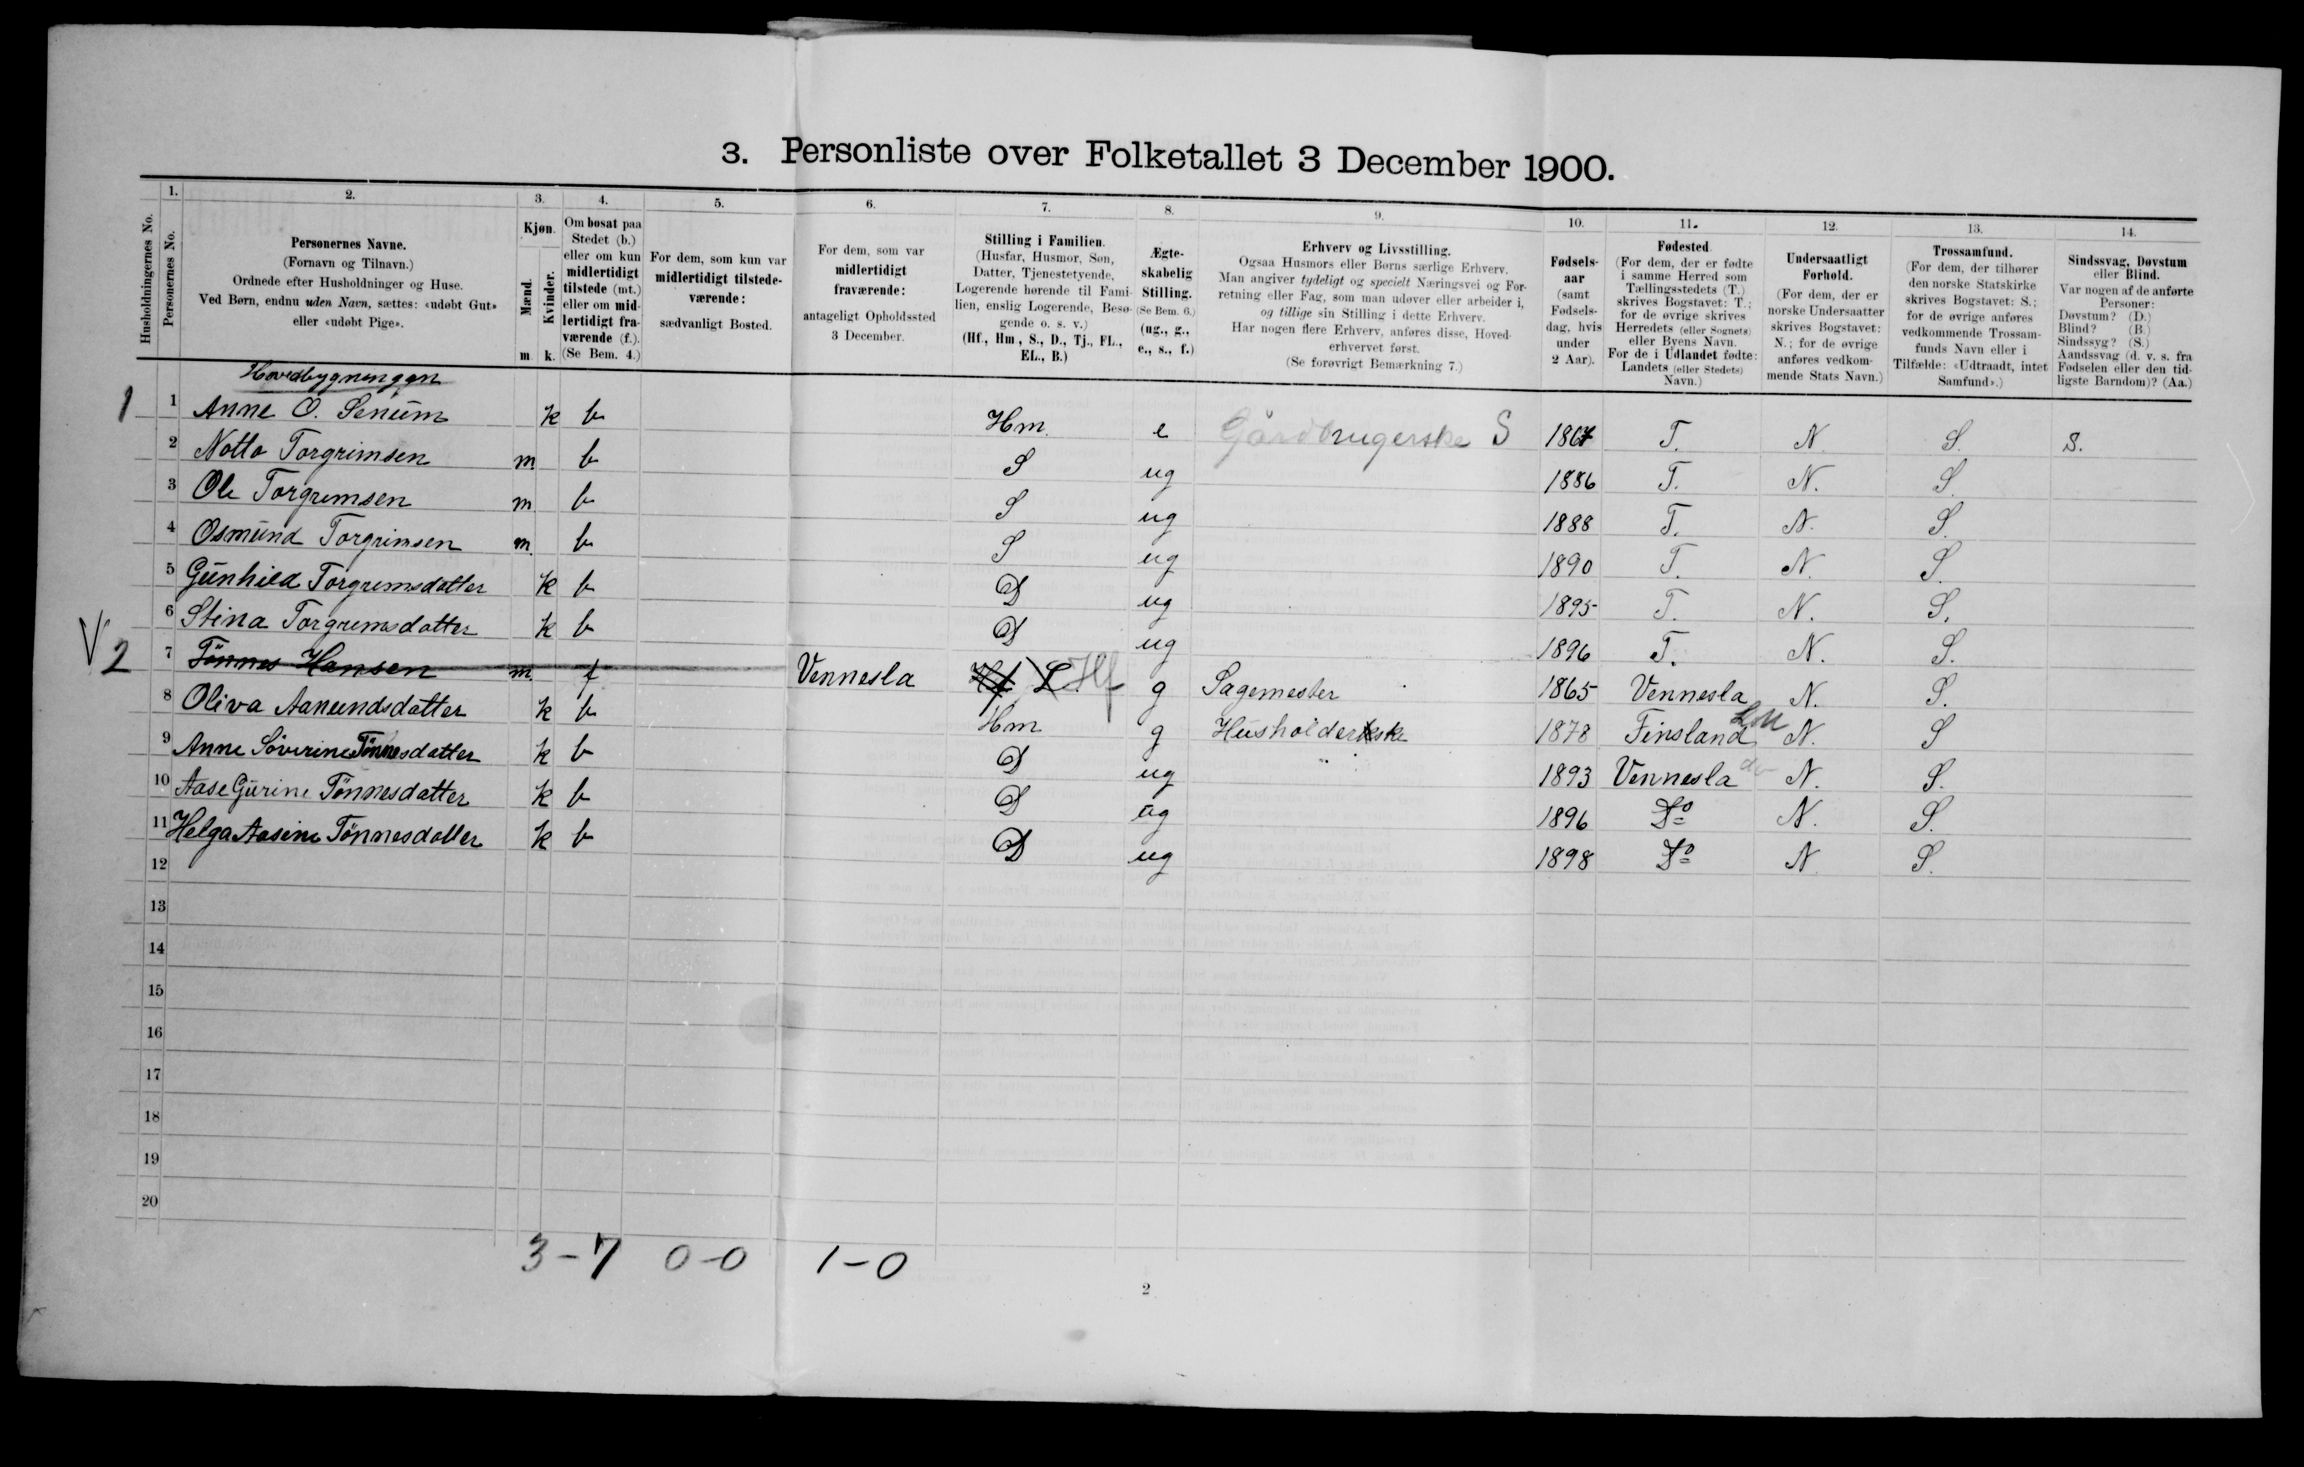 3. Personliste over Folketallet 3 December 1900.
1. 2. 3. 4. 5. 6. 7. 8. 9. 10. 11. 12. 13. 14.
Husholdningernes No.
Personernes No.
Personernes Navne.
(Fornavn og Tilnavn.)
Ordnede efter Husholdninger og Huse.
Ved Børn, endnu uden Navn, sættes: «udøbt Gut»
eller «udøbt Pige».
Kjøn.
Mænd.
Kvinder.
m. k.
Om bosat paa
Stedet (b.)
eller om kun
midlertidigt
tilstede (mt.)
eller om mid-
lertidigt fra-
værende (f.).
(Se Bem. 4.)
For dem, som kun var
midlertidigt tilstede-
værende:
sædvanligt Bosted.
For dem, som var
midlertidigt
fraværende:
antageligt Opholdssted
3 December.
Stilling i Familien.
(Husfar, Husmor, Søn,
Datter, Tjenestetyende,
Logerende hørende til Fami-
lien, enslig Logerende, Besø-
gende o. s. v.)
(Hf., Hm., S., D., Tj., FL.,
EL., B.)
Ægte-
skabelig
Stilling.
(Se Bem. 6.)
(ug., g.,
e., s., f.)
Erhverv og Livsstilling.
Ogsaa Husmors eller Børns særlige Erhverv.
Man angiver tydeligt og specielt Næringsvei og For-
retning eller Fag, som man udøver eller arbeider i,
og tillige sin Stilling i dette Erhverv.
Har nogen flere Erhverv, anføres disse, Hoved-
erhvervet først.
(Se forøvrigt Bemærkning 7.)
Fødsels-
aar
(samt
Fødsels-
dag, hvis
under
2 Aar).
Fødested
(For dem, der er fødte
i samme Herred som
Tællingsstedets (T.)
skrives Bogstavet: T.;
for de øvrige skrives
Herredets (eller Sognets)
eller Byens Navn.
For de i Udlandet fødte:
Landets (eller Stedets)
Navn.)
Undersaatligt
Forhold.
(For dem, der er
norske Undersaatter
skrives Bogstavet:
N.; for de øvrige
anføres vedkom-
mende Stats Navn.)
Trossamfund.
(For dem, der tilhører
den norske Statskirke
skrives Bogstavet: S.;
for de øvrige anføres
vedkommende Trossam-
funds Navn eller i
Tilfælde: «Udtraadt, intet
Samfund».)
Sindssvag, Døvstum
eller Blind.
Var nogen af de anførte
Personer:
Døvstum? (D.)
Blind? (B.)
Sindssyg? (S.)
Aandssvag (d. v. s. fra
Fødselen eller den tid-
ligste Barndom)? (Aa.)
Hovedbygningen
1 1 Anne O. Senum k b Hm. e Gårdbrugerske S 1867 T. N. S. S.
2 Notto Torgrimsen m. b S ug 1886 T. N. S.
3 Ole Torgrimsen m. b S ug 1888 T. N. S.
4 Osmund Torgrimsen m. b S ug 1890 T. N. S.
5 Gunhild Torgrimsdatter k b D ug 1895 T. N. S.
6 Stina Torgrimsdatter k b D ug 1896 T. N. S.
V 2 7 Tönnes Hansen m. f Vennesla Hf L. Hf g Sagemester 1865 Vennesla N. S.
8 Oliva Aanundsdatter k b Hm g Husholderske 1878 Finsland N. S
9 Anne Söverine Tönnesdatter k b D ug " 1893 Vennesla N. S.
10 Aase Gurine Tönnesdatter k b D ug 1896 Do N. S.
11 Helga Aasine Tönnesdatter k b D ug 1898 Do N S.
12
13
14
15
16
17
18
19
20
3-7 0-0 1-0
2